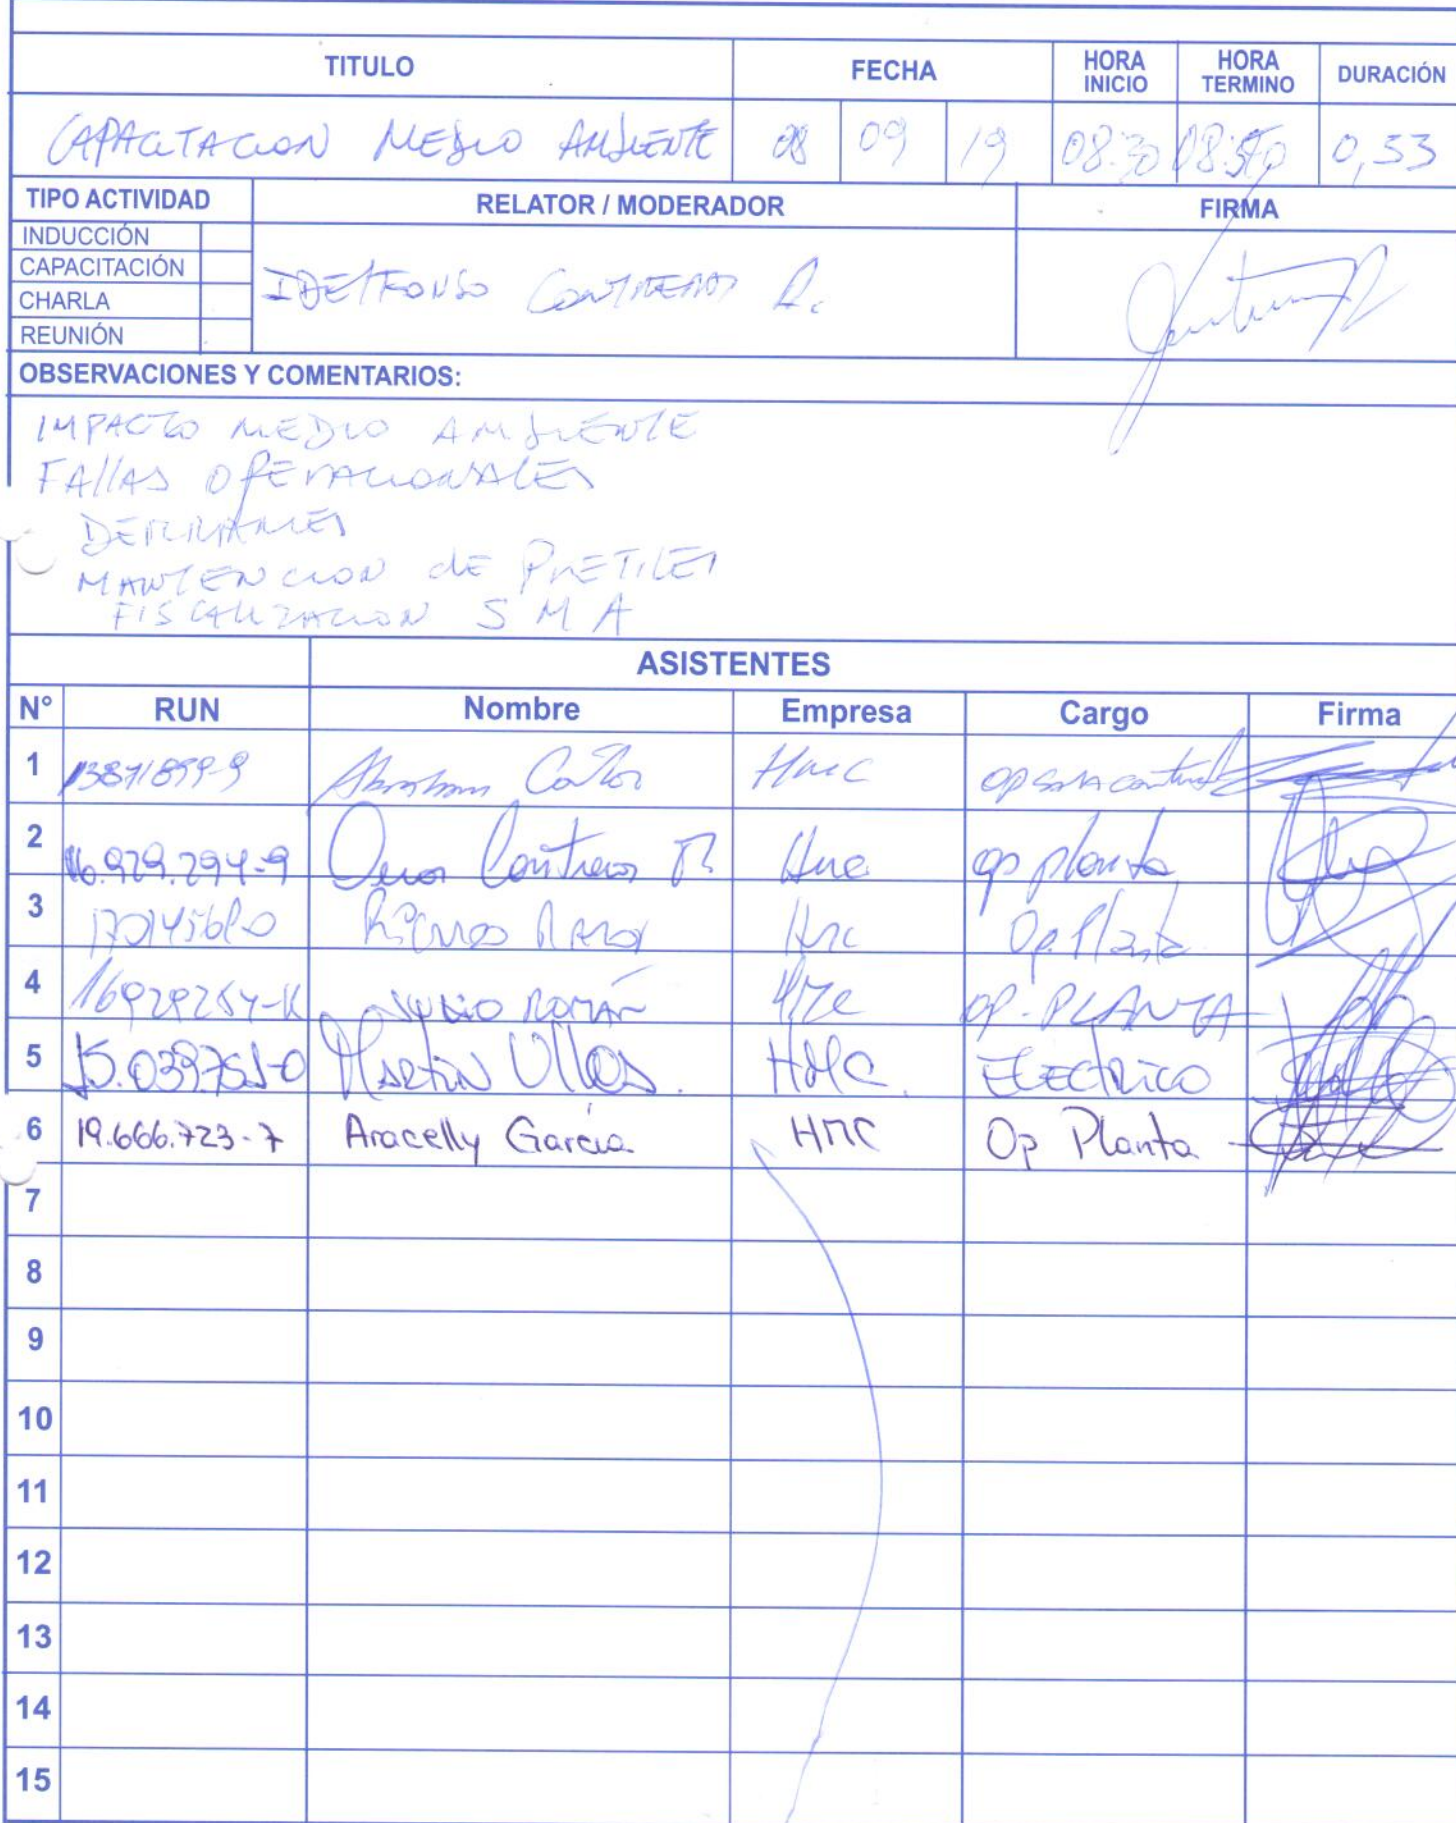 TITULO FECHA HORA INICIO HORA TERMINO DURACIÓN
CAPACITACION MEDIO AMBIENTE 08 09 19 08:30 08:50 0,33
TIPO ACTIVIDAD RELATOR / MODERADOR FIRMA
INDUCCIÓN
CAPACITACIÓN
IDELFONSO CONTRERAS R.
CHARLA
REUNIÓN
OBSERVACIONES Y COMENTARIOS:
IMPACTO MEDIO AMBIENTE
FALLAS OPERACIONALES
DERRAMES
MANTENCION de PRETILES
FISCALIZACION SMA
ASISTENTES
N° RUN Nombre Empresa Cargo Firma
1 Abraham HMC op sala control
2 16.929.294-9 Contreras R HMC op planta
3 HMC Op. Planta
4 ROMÁN HMC OP. PLANTA
5 Martin Ulloa HMC ELECTRICO
6 19.666.723-7 Aracelly Garcia HMC Op Planta
7
8
9
10
11
12
13
14
15